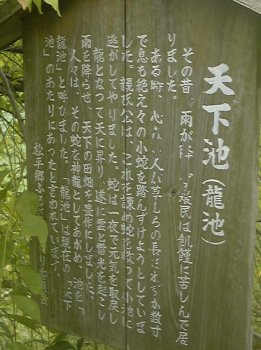 天下池(龍池)
その昔、雨が降 農民は飢饉に苦しんで居
りました。
ある時、心 人が草むらの長 わずか数寸
で息も絶え々の小蛇を踏んずけようとしていま
した。親氏公は、これを諫め蛇を救って小池に
逃がしてやりました。蛇は一夜で元気を取戻し
龍となって天に昇り、遂に雲を呼び を起こし
雨を降らせ、天下の田畑を豊作にしました。
人々は、その蛇を神龍としてあがめ、池を「
龍池」と呼びました。「龍池」は現在の「天下
池」のあたりにあったと言われています。
松平郷